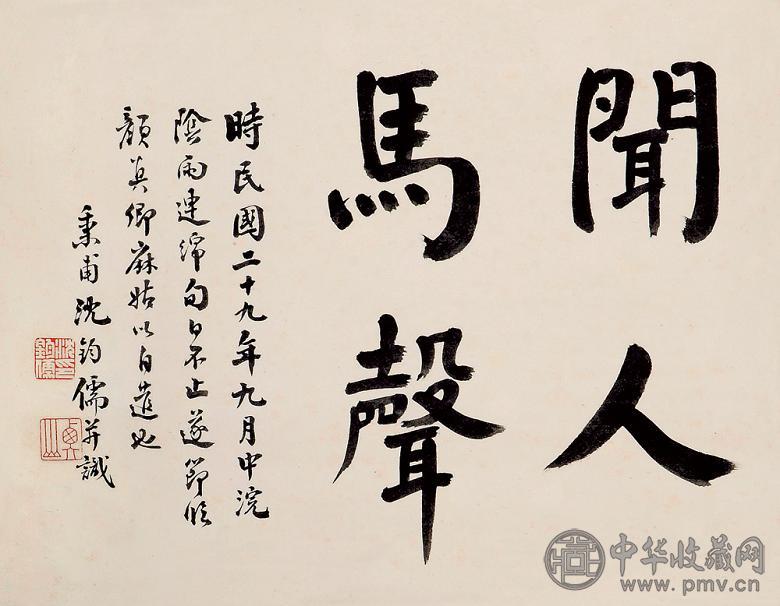 聞人
馬聲
時民國二十九年九月中浣
陰雨連綿旬日不止遂節臨
顏真卿麻姑以自遣也
秉甫沈鈞儒并識
中华收藏网
www.pmv.cn